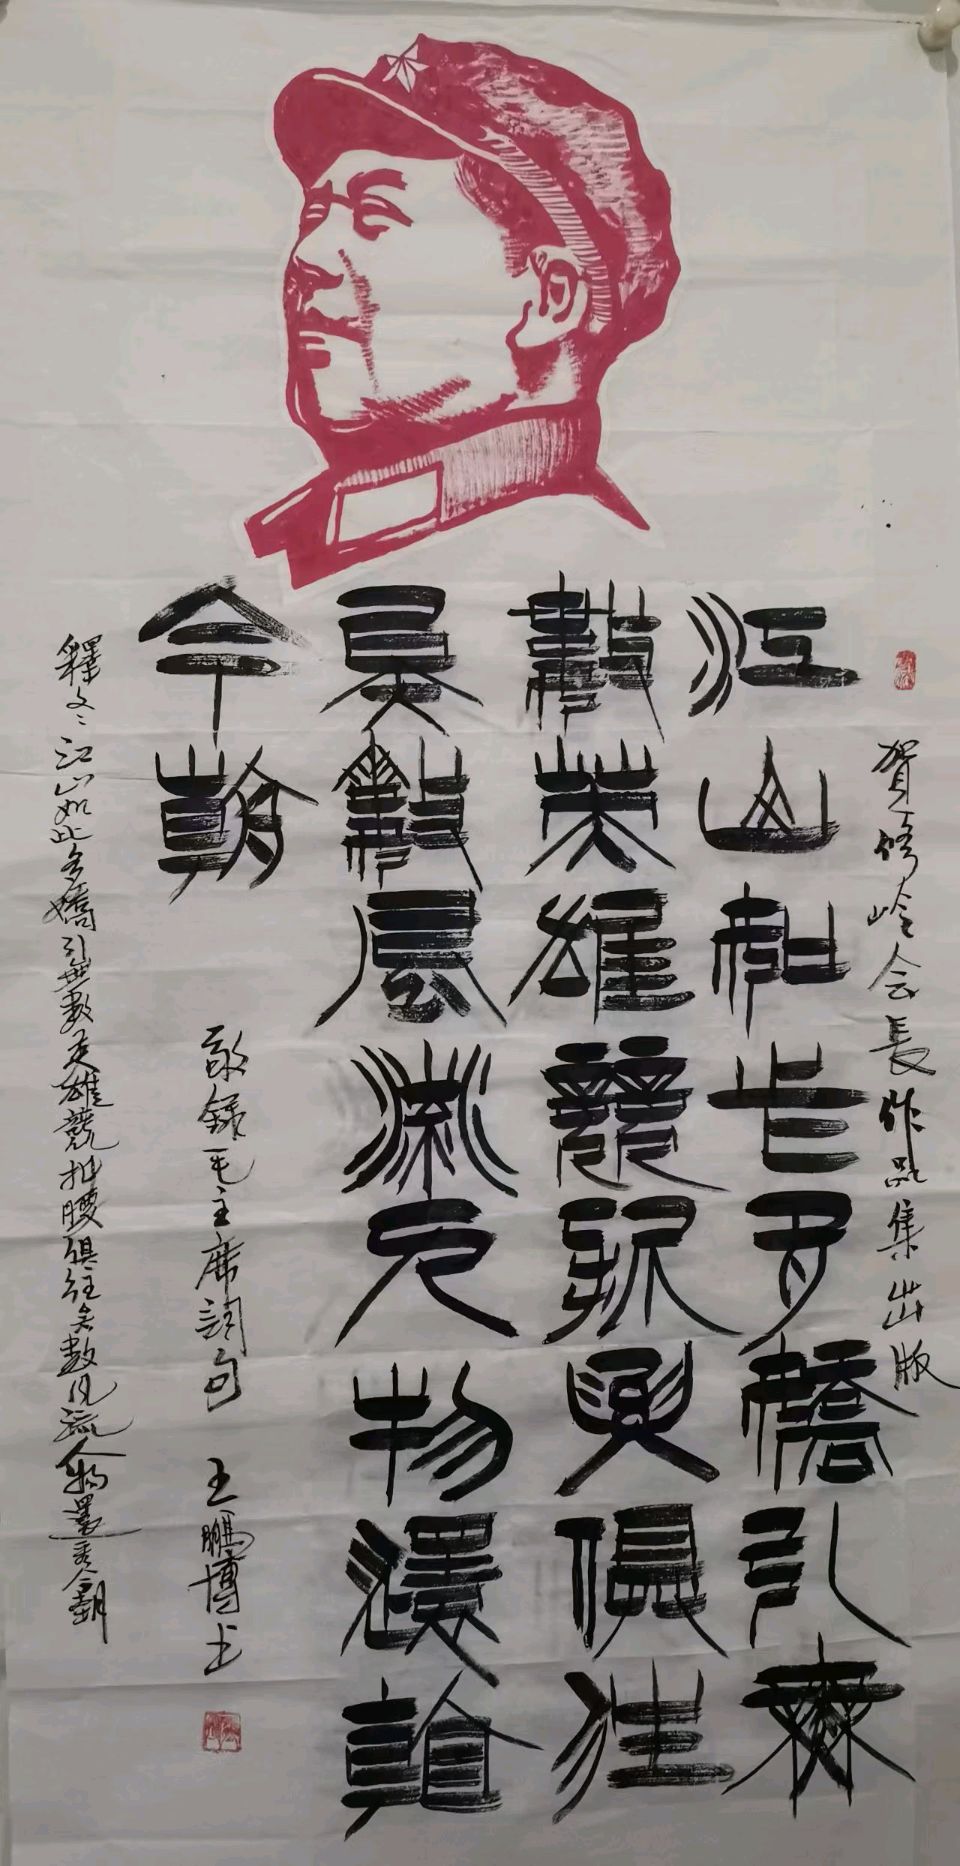 賀修岭会長作品集出版
江山如此多嬌引無
數英雄競折腰俱往
矣數風流人物還看
今朝
敬錄毛主席詞句 王鵬博书
釋文：江山如此多嬌引無數英雄競折腰俱往矣數风流人物還看今朝